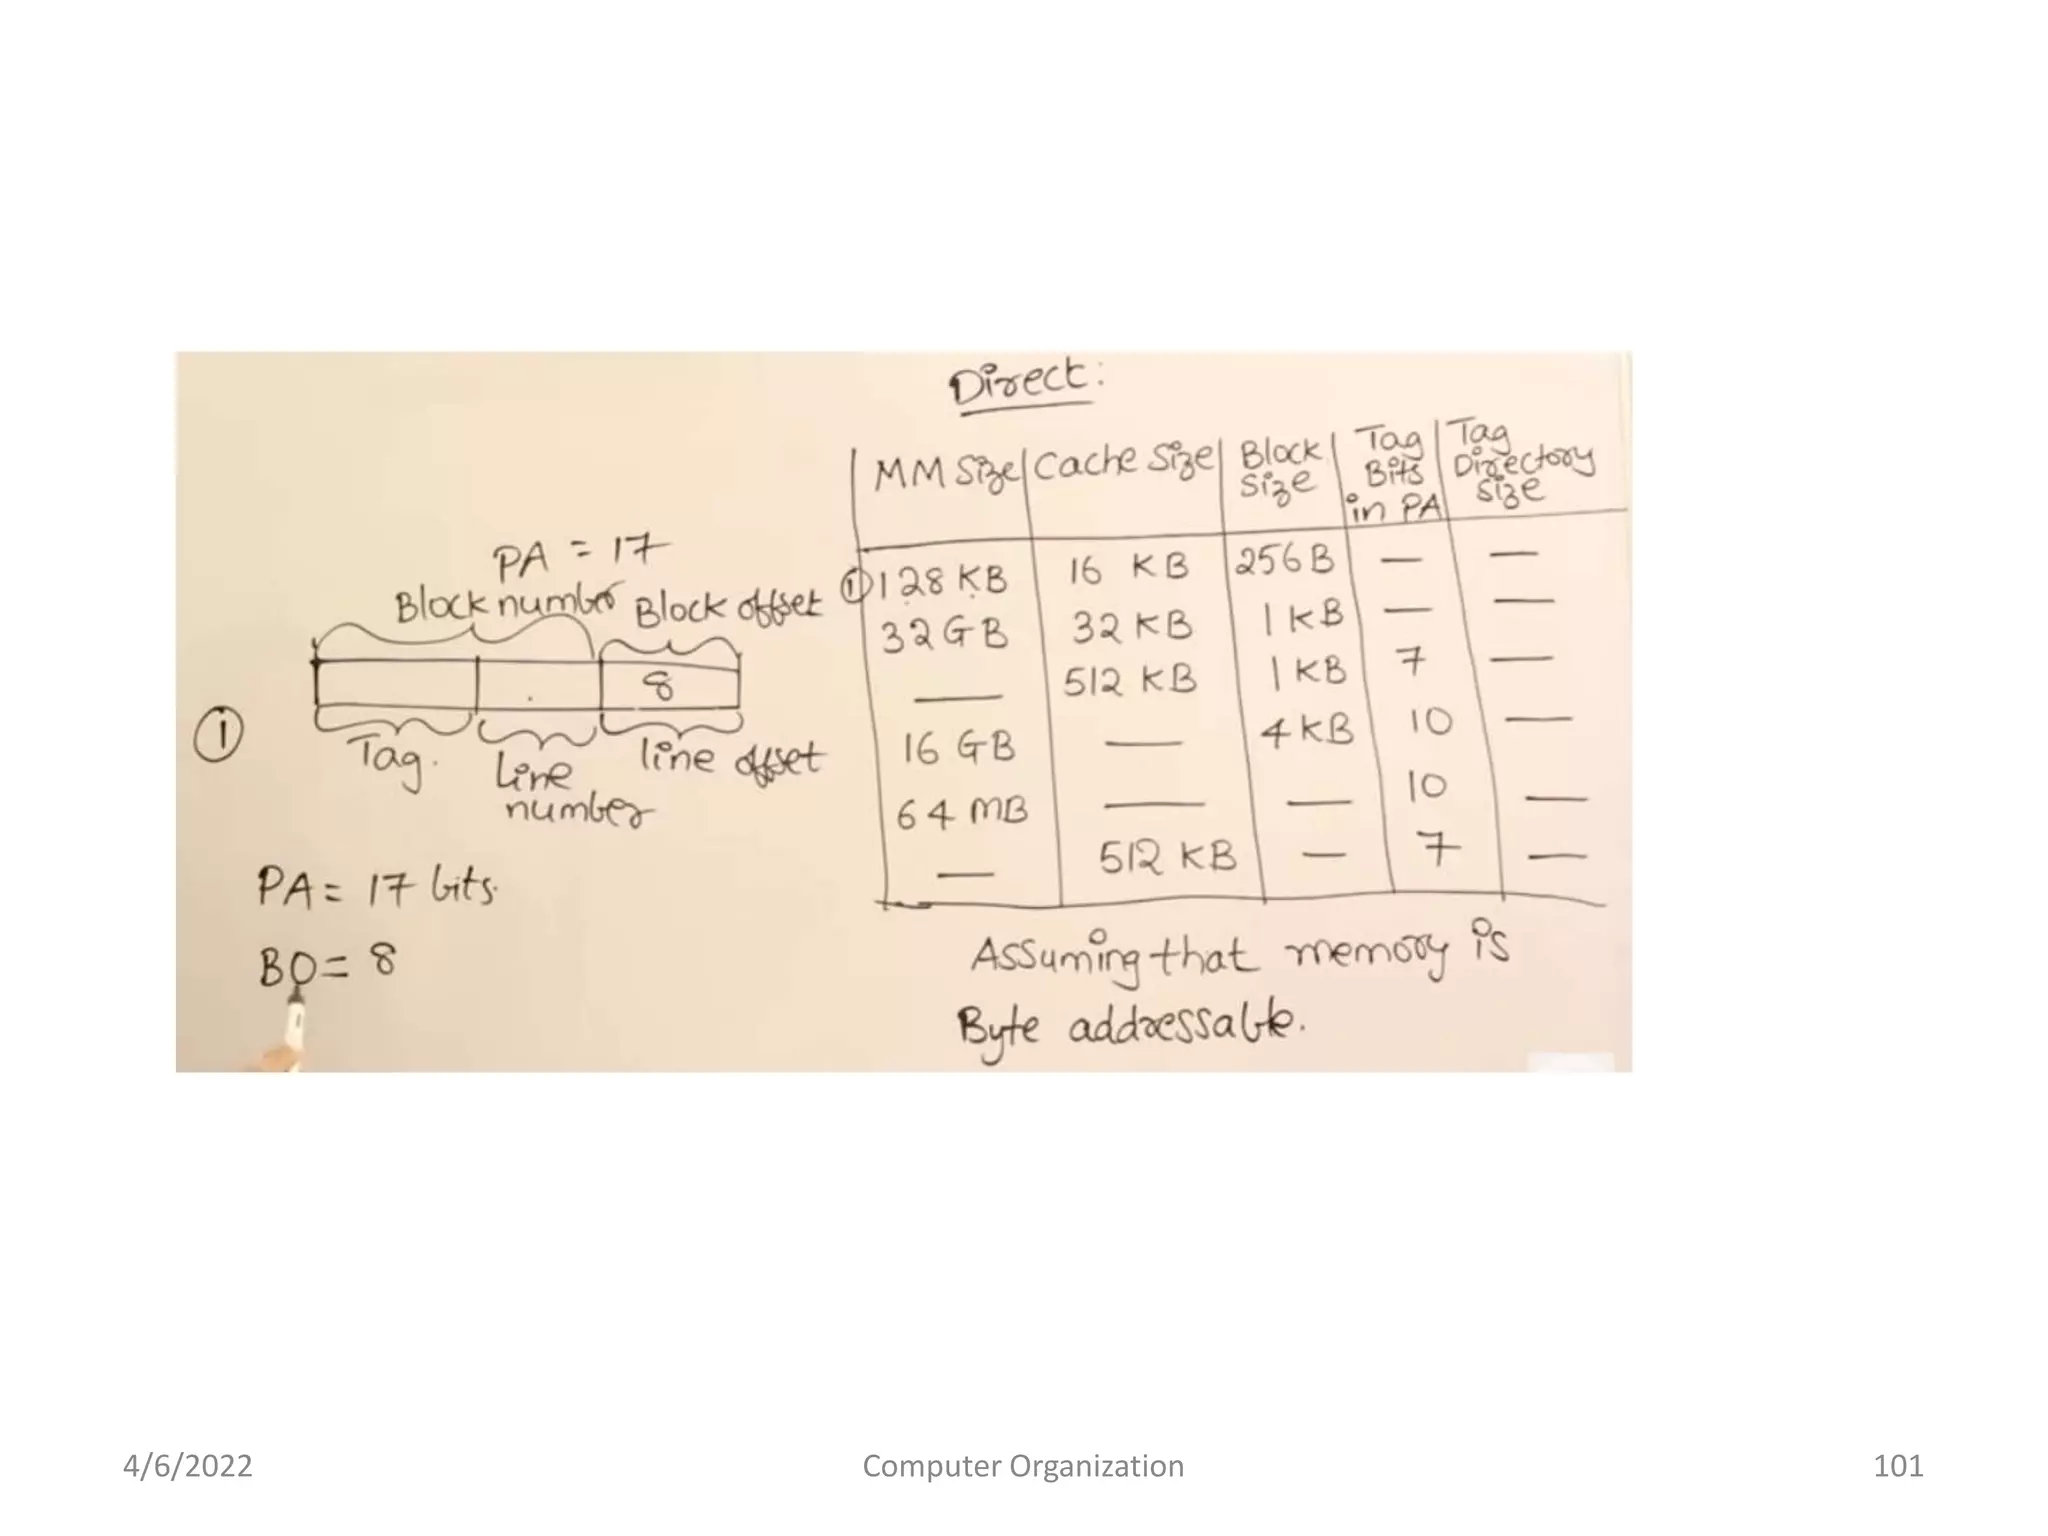 Direct:
MM Size Cache Size Block Size Tag Bits in PA Tag Directory Size
① 128 KB 16 KB 256 B — —
32 GB 32 KB 1 KB — —
— 512 KB 1 KB 7 —
16 GB — 4 KB 10 —
64 MB — — 10 —
— 512 KB — 7 —
Assuming that memory is
Byte addressable.
PA = 17
Block number Block offset
8
①
Tag. Line number line offset
PA = 17 bits.
BO = 8
4/6/2022 Computer Organization 101